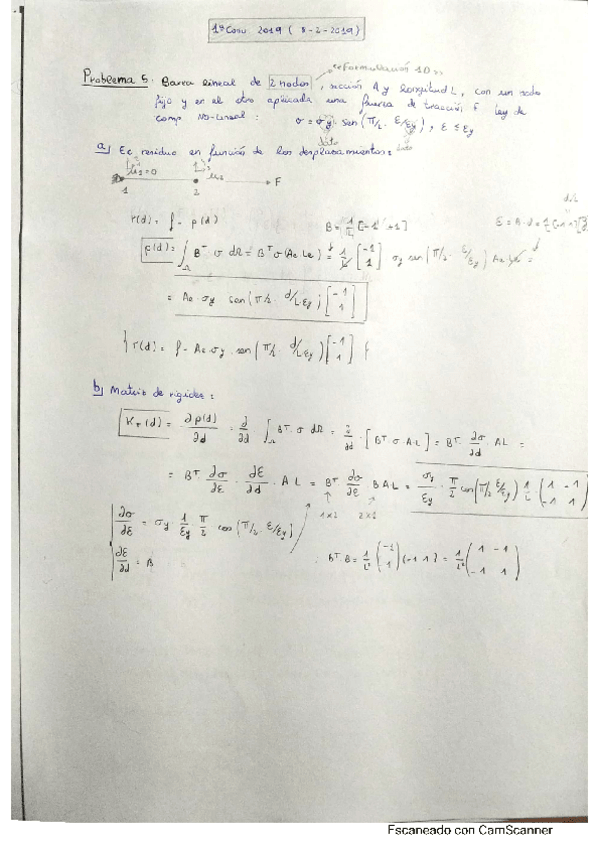 1ª Conv. 2019 (8-2-2019)
"Formulación 1D"
Problema 5. Barra lineal de 2 nodos, sección A y longitud L, con un nodo
fijo y en el otro aplicada una fuerza de tracción F. Ley de
comp No-Lineal: σ = σy · sen(π/2 · ε/εy), ε ≤ εy
dato dato
a) El residuo en función de los desplazamientos:
u1=0 u2 F
1 2
r(d) = f - p(d) B = 1/L [-1 +1]
p(d) = ∫Ω B^T · σ dΩ = B^T σ(Ae Le) = 1/L [-1 1] σy sen(π/2 · ε/εy) Ae Le =
= Ae · σy sen(π/2 · d/L·εy) [-1 1]
r(d) = f - Ae σy · sen(π/2 · d/L·εy) [-1 1]
b) Matriz de rigidez:
KT(d) = ∂p(d)/∂d = ∂/∂d ∫Ω B^T · σ dΩ = ∂/∂d · [B^T · σ A·L] = B^T · ∂σ/∂d · AL =
= B^T · ∂σ/∂ε · ∂ε/∂d · A L = B^T · ∂σ/∂ε · B A L = σy/εy · π/2 cos(π/2 ε/εy) 1/L · (1 -1 -1 1)
1x2 2x1
∂σ/∂ε = σy · 1/εy · π/2 cos(π/2 · ε/εy)
∂ε/∂d = B B^T B = 1/L² (-1 1) (-1 1) = 1/L² (1 -1 -1 1)
Escaneado con CamScanner